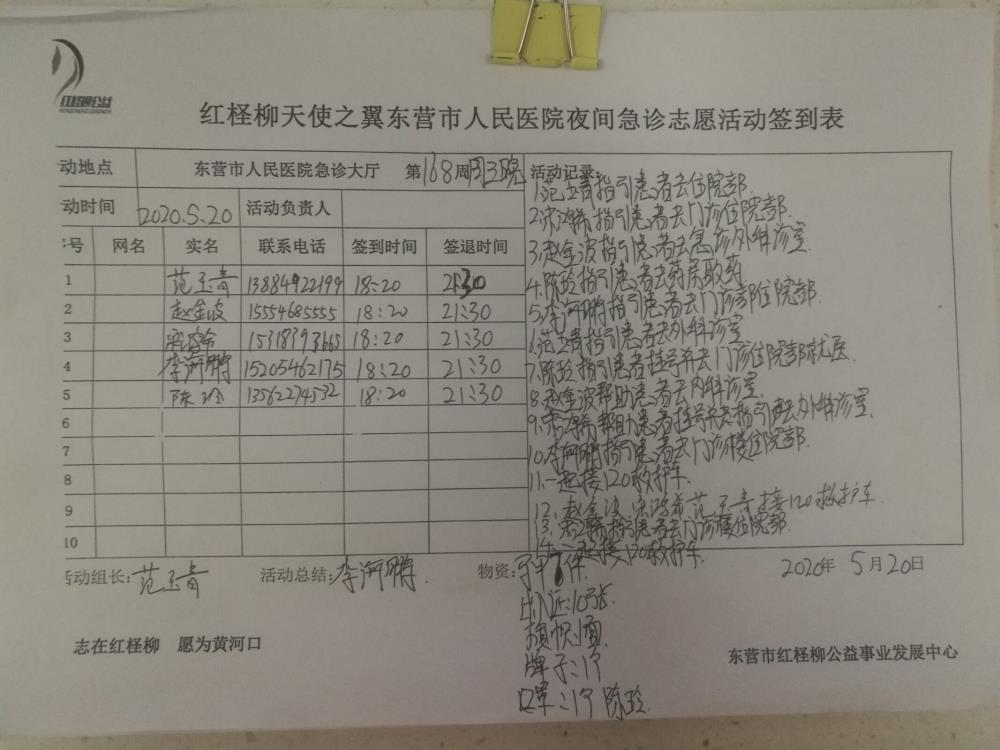 红柽柳公益
红柽柳天使之翼东营市人民医院夜间急诊志愿活动签到表
动地点 东营市人民医院急诊大厅 第168周周三晚 活动记录:
动时间 2020.5.20 活动负责人
号 网名 实名 联系电话 签到时间 签退时间
1 范玉青 13884922199 18:20 21:30
2 赵金波 15554685555 18:20 21:30
3 15318393665 18:20 21:30
4 李河鹏 15205462175 18:20 21:30
5 陈玲 13562274532 18:20 21:30
6
7
8
9
10
1.范玉青指引患者去住院部.
2.宋鸿希指引患者去门诊住院部.
3.赵金波指引患者去急诊外科诊室
4.陈玲指引患者去药房取药
5.李河鹏指引患者去门诊部住院部.
6.范玉青指引患者去外科诊室
7.陈玲指引患者挂号并去门诊住院部就医
8.赵金波帮助患者去内科诊室.
9.宋鸿希帮助患者挂号并去指引去外科诊室.
10.李河鹏指引患者去门诊楼住院部.
11.一起接120救护车
12.赵金波 宋鸿希 范玉青接120救护车
13.宋鸿希指引患者去门诊楼住院部.
14.一起接120救护车.
活动组长:范玉青 活动总结:李河鹏. 物资: 2020年5月20日
10张.
旗帜:1面
牌子:1个
口罩:1个 陈玲.
志在红柽柳 愿为黄河口
东营市红柽柳公益事业发展中心